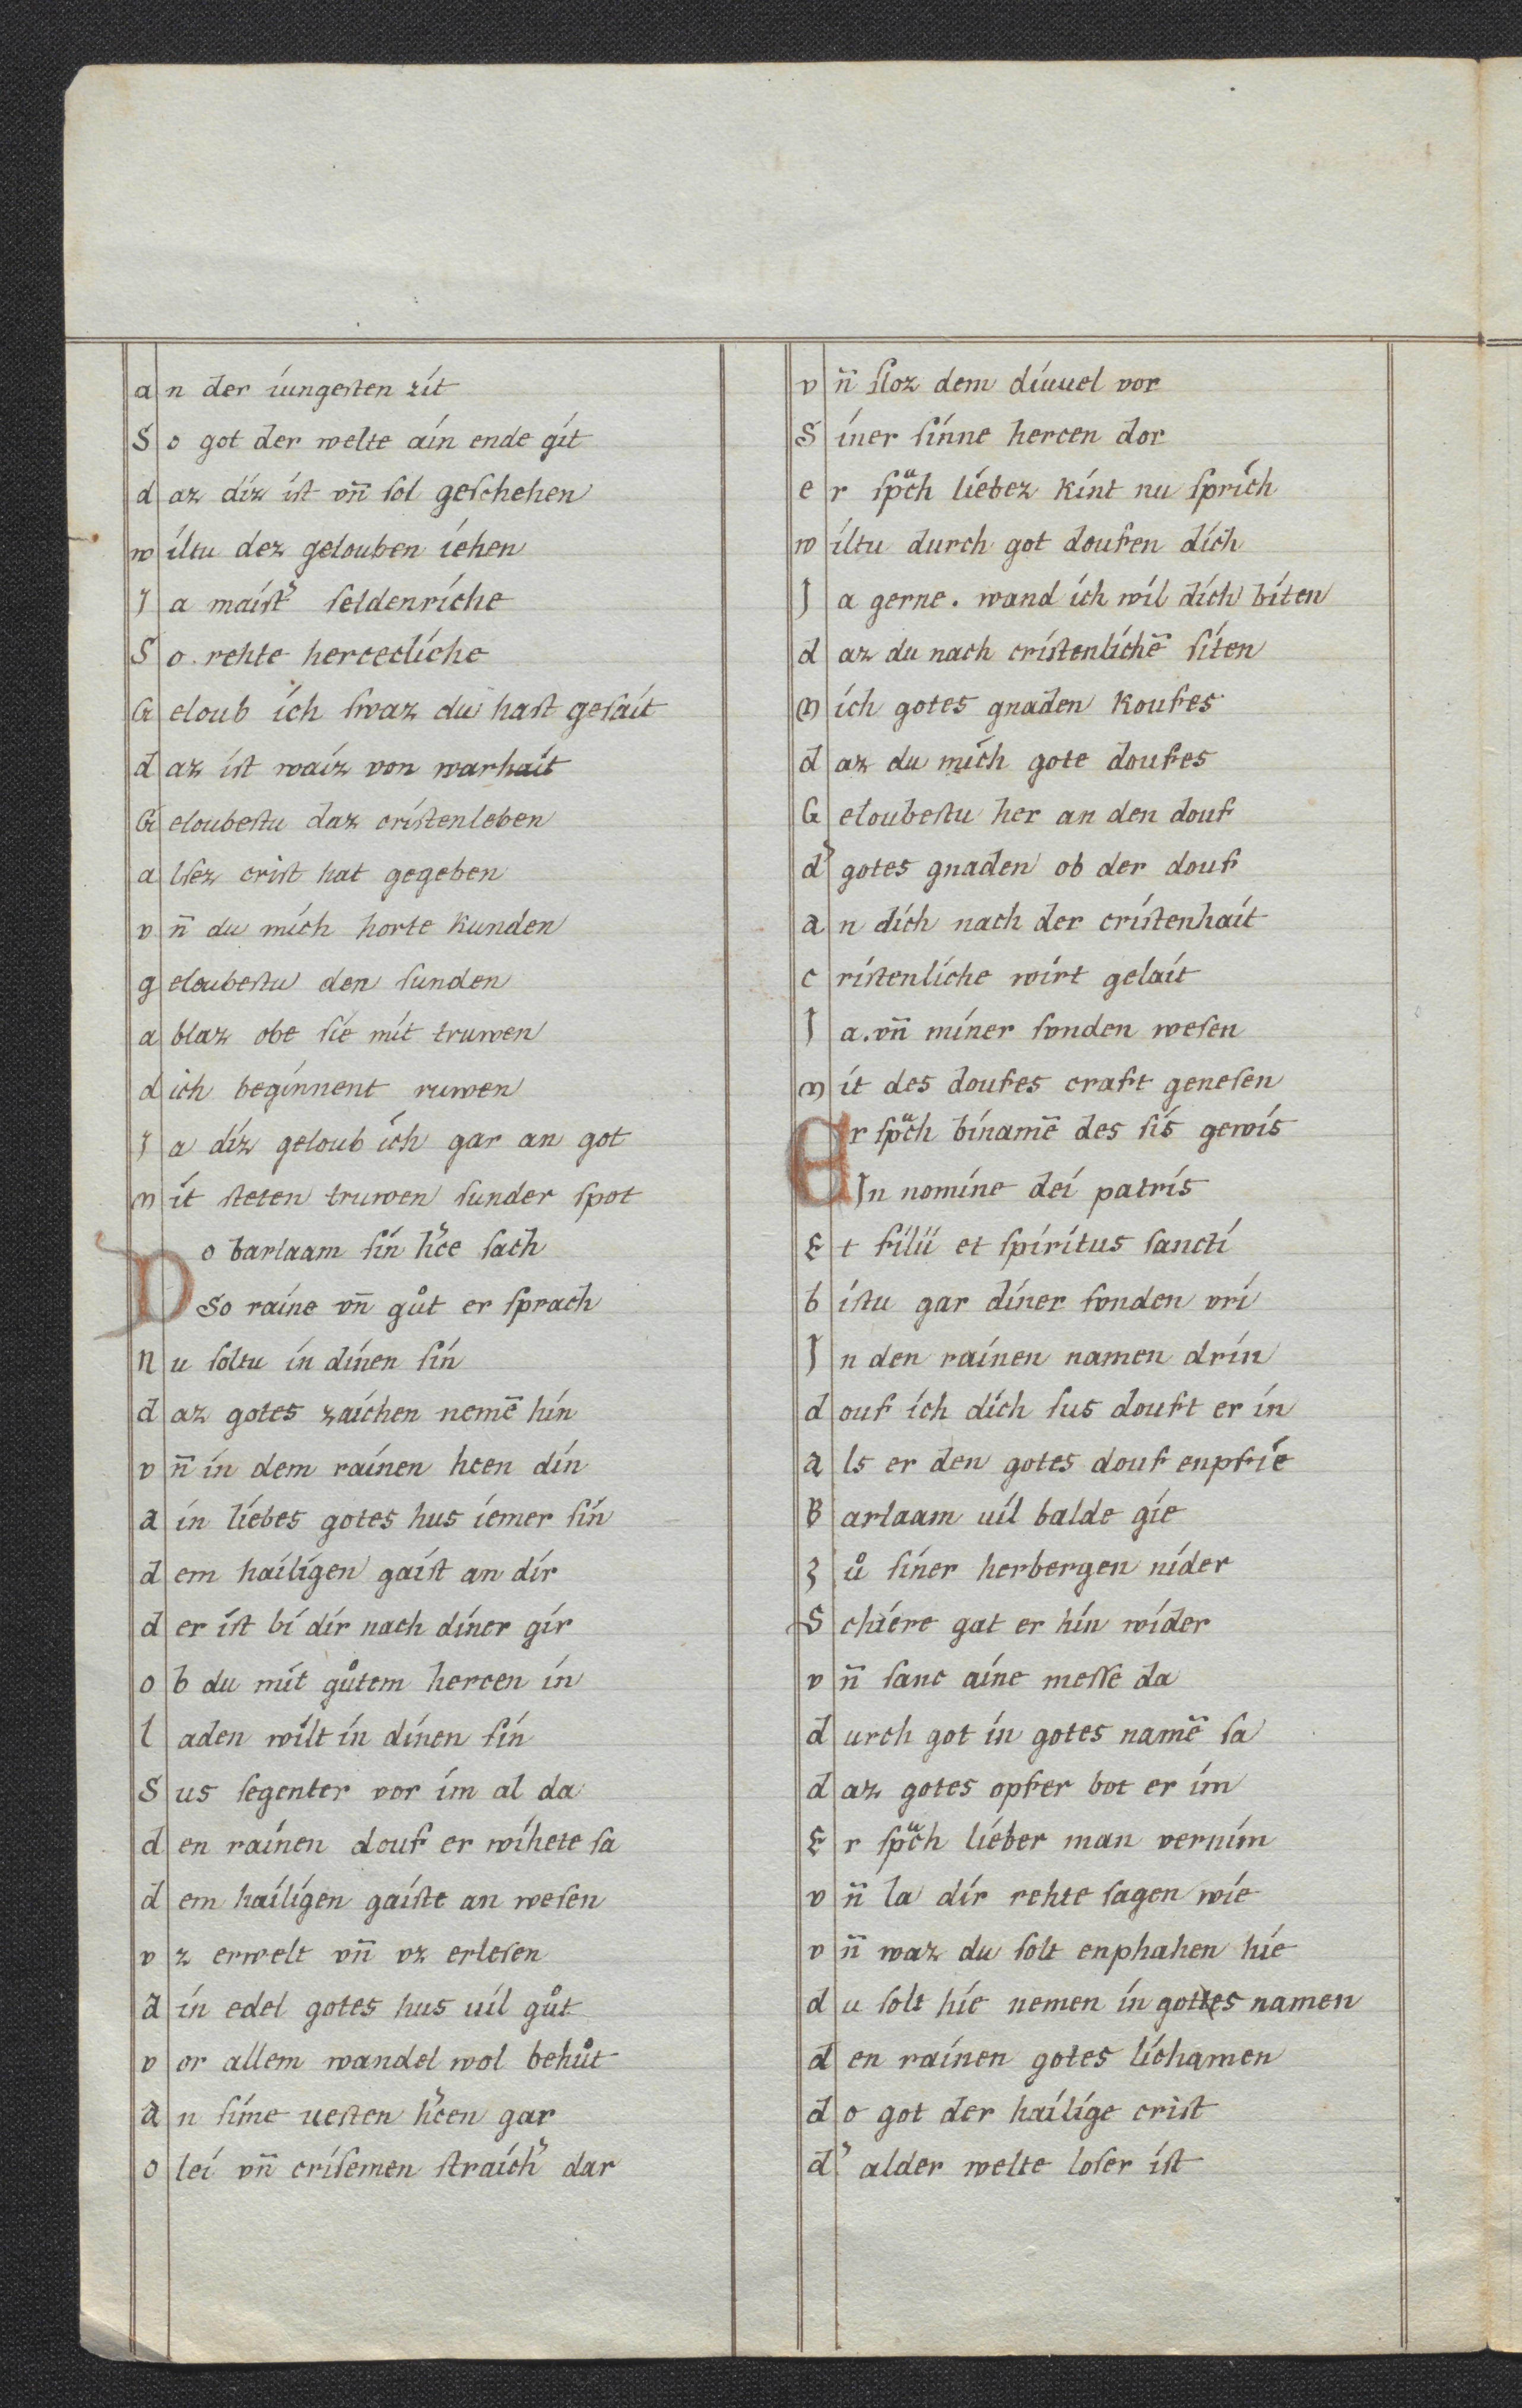 an der iungesten zit
So got der welte ain ende git
daz diz iſt vn̄ ſol geſchehen
wiltu dez gelouben iehen
Ja maiſt᾽ ſeldenriche
So rehte herceclíche
Geloub ich ſwaz du haſt geſait
daz iſt waiz von warhait
Geloubeſtu daz criſtenleben
alſez criſt hat gegeben
vn̄ du mich horte kunden
geloubeſtu den ſunden
ablaz obe ſie mit truwen
dich beginnent ruwen
Ja diz geloub ich gar an got
mit ſteten truwen ſunder ſpot
Do barlaam ſin h᾽ce ſach
So raine vn̄ gůt er ſprach
Nu ſoltu in dinen ſin
daz gotes zaichen nemē hin
vn̄ in dem rainen hcen din
ain liebes gotes hus iemer ſin
dem hailigen gaiſt an dir
der iſt bi dir nach diner gir
ob du mit gůtem hercen in
laden wilt in dinen ſin
Sus ſegenter vor im al da
den rainen douf er wihete ſa
dem hailigen gaiſte an weſen
vz erwelt vn̄ vz erleſen
ain edel gotes hus uil gůt
vor allem wandel wol behůt
an ſime ueſten h᾽cen gar
olei vn̄ criſemen ſtraich᾽ dar
vn̄ ſloz dem diuuel vor
Siner ſinne hercen dor
er ſpͣch liebez kint nu ſprich
wiltu durch got doufen dich
Ja gerne. wand ich wil dich biten
daz du nach criſtenlichē ſiten
mich gotes gnaden koufes
daz du mich gote doufes
Geloubeſtu her an den douf
d᾽ gotes gnaden ob der douf
an dich nach der criſtenhait
criſtenliche wirt gelait
Ja. vn̄ miner ſvnden weſen
mit des doufes craft geneſen
Er ſpͣch binamē des ſis gewis
In nomine dei patris
Et filii et ſpiritus ſancti
biſtu gar diner ſvnden vri
In den rainen namen drin
douf ich dich ſus douft er in
als er den gotes douf enpfie
Barlaam uil balde gie
Zů ſiner herbergen nider
Schiere gat er hin wider
vn̄ ſanc aine meſſe da
durch got in gotes namē ſa
daz gotes opfer bot er im
Er ſpͣch lieber man vernim
vn̄ la dir rehte ſagen wie
vn̄ waz du ſolt enphahen hie
du ſolt hie nemen in gottes namen
den rainen gotes lichamen
do got der hailige criſt
d᾽ alder welte loſer iſt